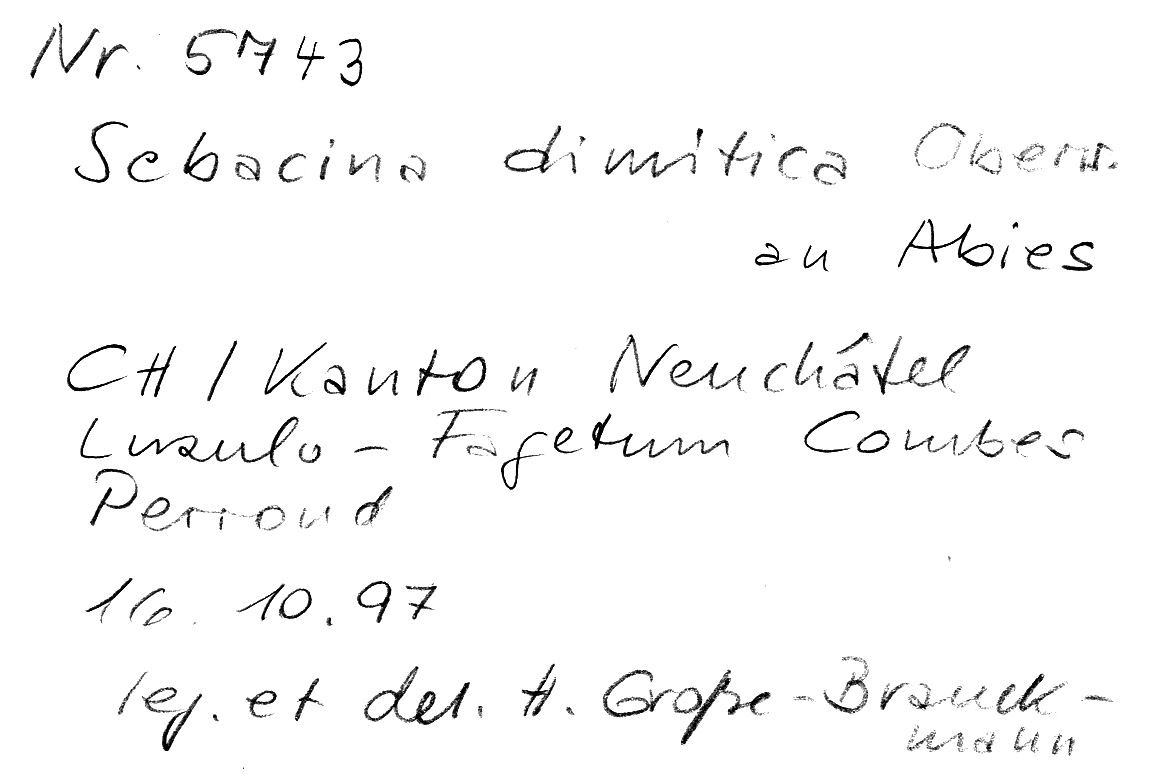 Nr. 5743
Sebacina dimitica Oberw.
an Abies
CH / Kanton Neuchâtel
Luzulo - Fagetum Combes
Perroud
16. 10. 97
leg. et det. H. Große-Brauck-
mann